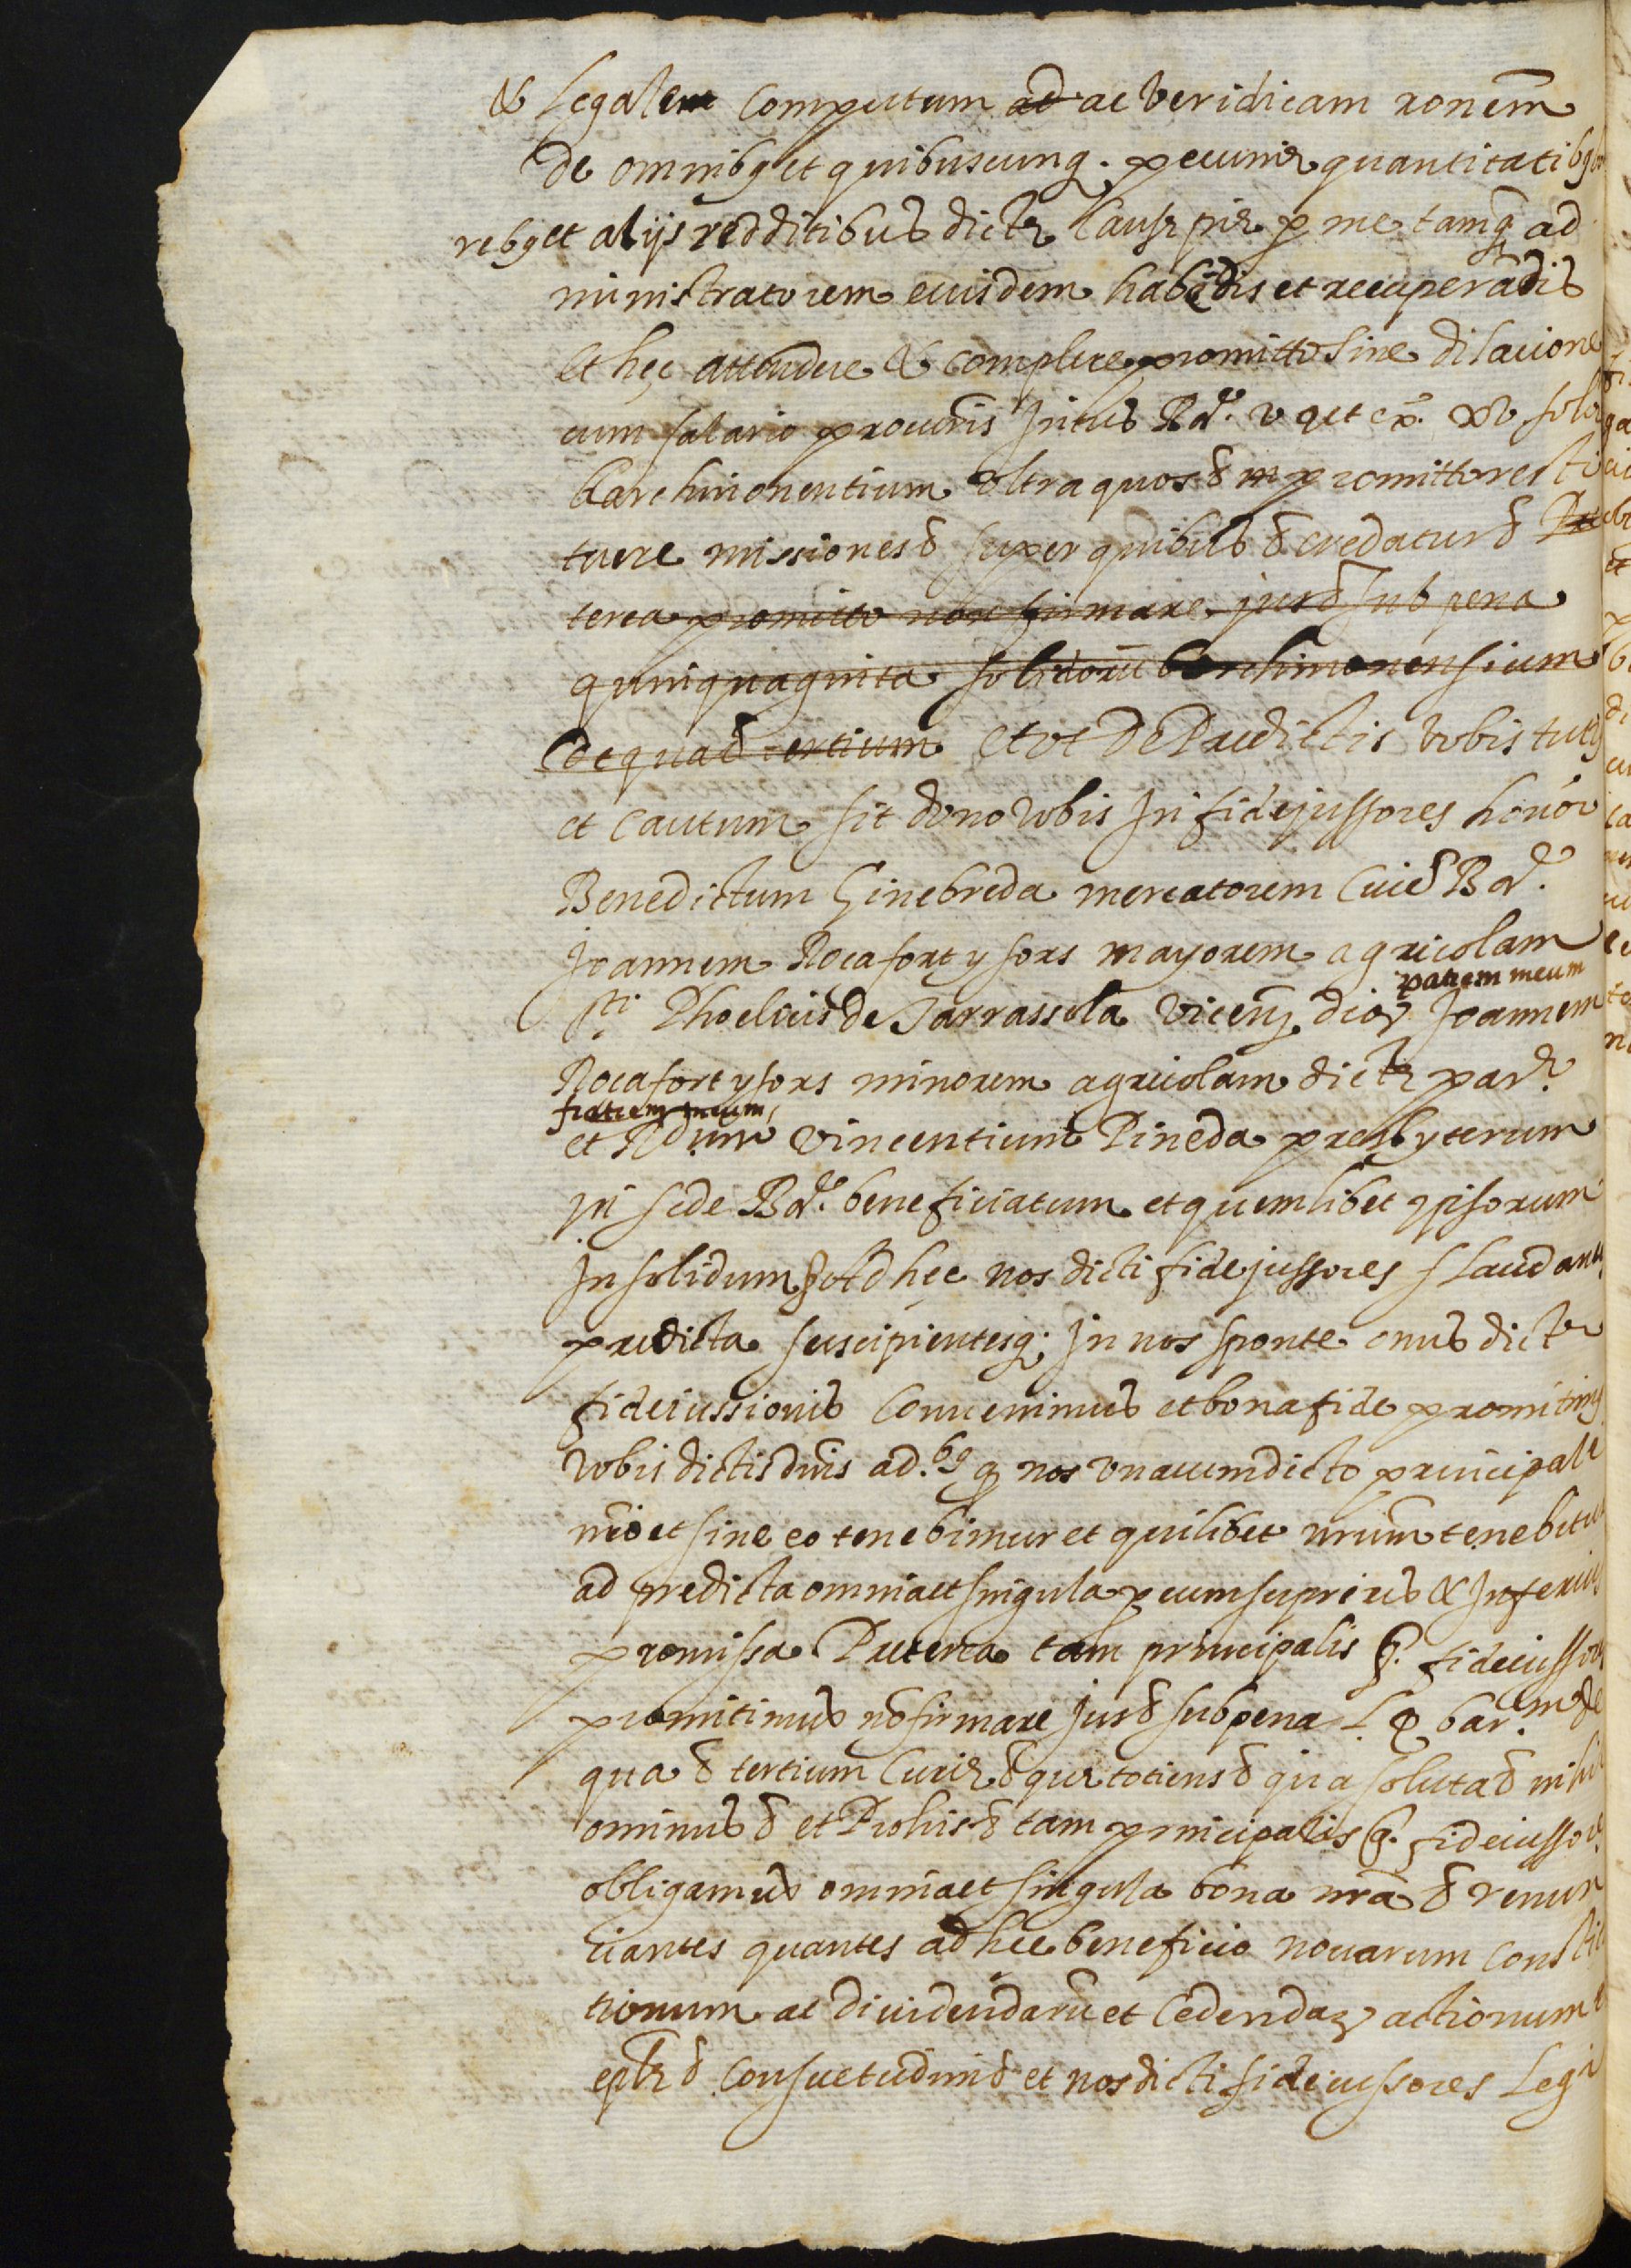 & Legalem Computum ad ac veridicam ronem
de omnibq et quibuscunq. pecuniæ quantitatibq
rebq et alijs redditibus dictæ Causæ piæ p me tamq ad
ministratorem eiusdem habēdis et recuperādis
Et hęc attendere & complere promitto sine dilacione
cum salario procuris Intus Bar. v et ex. xv solid
barchinonentium Vltra quos & promitto resti
tuere missiones & super quibus & credatur & Pre
terea promitto non firmare jus & sub pena
quinquaginta solidorū barchinonensium
de qua & tertium Et vt De Predictis vobis tutq
et Cautum sit dono vobis In fidejussores honor
Benedictum Ginebreda mercatorem Civē Bar.
Joannem Rocafort y sors mayorem agricolam
patrem meum
Sti Phoelicis de Tarrassola Vicenq dioq Joannem
Rocafort y sors minorem agricolam dictæ par.
fratrem meum,
et Rdum Vincentium Pineda presbyterum
in sede Bar. beneficiatum et quemlibet ipsorum
In solidum Ad hęc nos dicti fidejussores Laudanq
predicta suscipientesq; In nos sponte onus dictæ
fideiussionis Convenimus et bona fide promitimq
Vobis dictis dnis ad.bq q nos vna cum dicto principale
nro et sine eo tenebimur et quilibet nrum tenebitur
ad predicta omnia et singula p eum superius & Inferius
promissa Preterea tam principalis q. fideiussores
promitimus nō firmare jus & sub pena L bar.m de
qua & tertium Curiæ & quæ totiens & qua soluta & nihil
ominus & et Pro his & tam principalis q. fideiussores
obligamus omnia et singula bona nrā & renun
ciantes quantes ad hec beneficio novarum Constitu
tionum ac dividendarū et Cedendaq actionum
eplæ & Consuetudini & et nos dicti fideiussores Legi